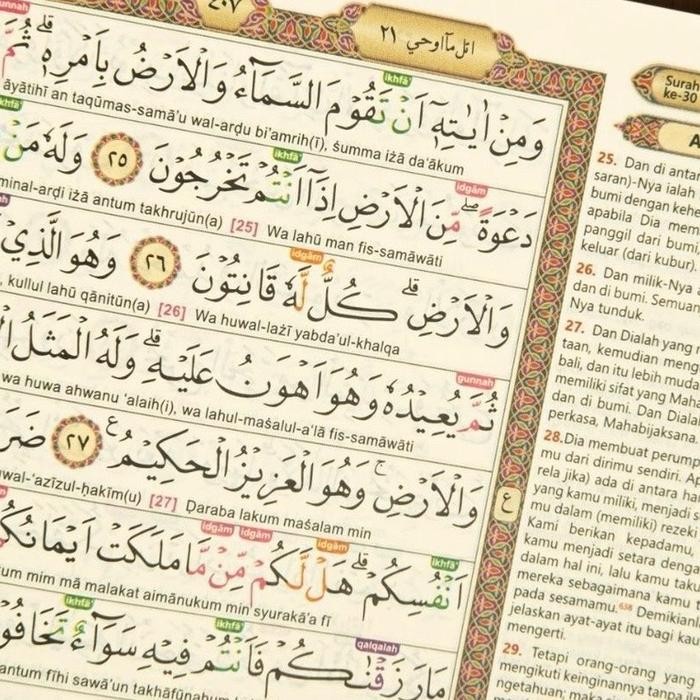 ٤٠٧
اتل مآ اوحي ٢١
وَمِنْ اٰيٰتِهٖٓ اَنْ تَقُوْمَ السَّمَاۤءُ وَالْاَرْضُ بِاَمْرِهٖۗ ثُمَّ
āyātihī an taqūmas-samā'u wal-arḍu bi'amrih(ī), ṡumma iżā da'ākum
دَعْوَةً ۖمِّنَ الْاَرْضِ اِذَآ اَنْتُمْ تَخْرُجُوْنَ ٢٥ وَلَهٗ مَنْ
minal-arḍi iżā antum takhrujūn(a) [25] Wa lahū man fis-samāwāti
وَالْاَرْضِۗ كُلٌّ لَّهٗ قَانِتُوْنَ ٢٦ وَهُوَ الَّذِيْ
, kullul lahū qānitūn(a) [26] Wa huwal-lażī yabda'ul-khalqa
ثُمَّ يُعِيْدُهٗ وَهُوَ اَهْوَنُ عَلَيْهِۗ وَلَهُ الْمَثَلُ
wa huwa ahwanu 'alaih(i), wa lahul-maṡalul-a'lā fis-samāwāti
وَالْاَرْضِۚ وَهُوَ الْعَزِيْزُ الْحَكِيْمُ ࣖ ٢٧ ضَرَ
wal-'azīzul-ḥakīm(u) [27] Ḍaraba lakum maṡalam min
اَنْفُسِكُمْۗ هَلْ لَّكُمْ مِّنْ مَّا مَلَكَتْ اَيْمَانُكُمْ
kum mim mā malakat aimānukum min syurakā'a fī
مَا رَزَقْنٰكُمْ فَاَنْتُمْ فِيْهِ سَوَاۤءٌ تَخَافُوْ
antum fīhi sawā'un takhāfūnahum
gunnah
ikhfā'
ikhfā'
ikhfā'
idgām
idgām
gunnah
idgām idgām
idgām
ikhfā'
ikhfā'
ikhfā'
qalqalah
ع
Surah
ke-30
A
25. Dan di antar
saran)-Nya ialah
bumi dengan keh
apabila Dia mem
panggil dari bumi
keluar (dari kubur).
26. Dan milik-Nya a
dan di bumi. Semua
Nya tunduk.
27. Dan Dialah yang m
taan, kemudian meng
bali, dan itu lebih muda
memiliki sifat yang Maha
dan di bumi. Dan Dialah
perkasa, Mahabijaksana.
28.Dia membuat perump
mu dari dirimu sendiri. Ap
rela jika) ada di antara ha
yang kamu miliki, menjadi s
mu dalam (memiliki) rezeki
Kami berikan kepadamu,
kamu menjadi setara denga
dalam hal ini, lalu kamu taku
mereka sebagaimana kamu
pada sesamamu.⁶³⁸ Demikianl
jelaskan ayat-ayat itu bagi kau
mengerti.
29. Tetapi orang-orang yang
mengikuti keinginannya tanp
ngetahuan; maka si